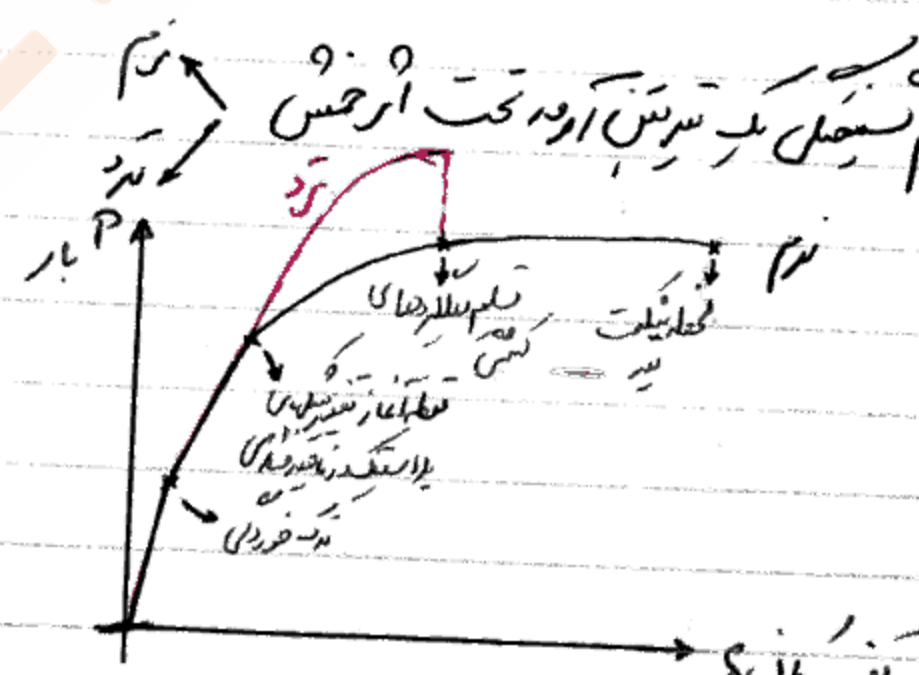 نرم
شکستگی یک تیر بتن آرمه تحت اثر خمش
ترد
ترد
P
بار
نرم
تسلیم میلگردهای
کششی
لحظه شکست
تیر
نقطه آغاز تغییر شکل‌های
پلاستیک در ناحیه فشاری
ترک خوردگی